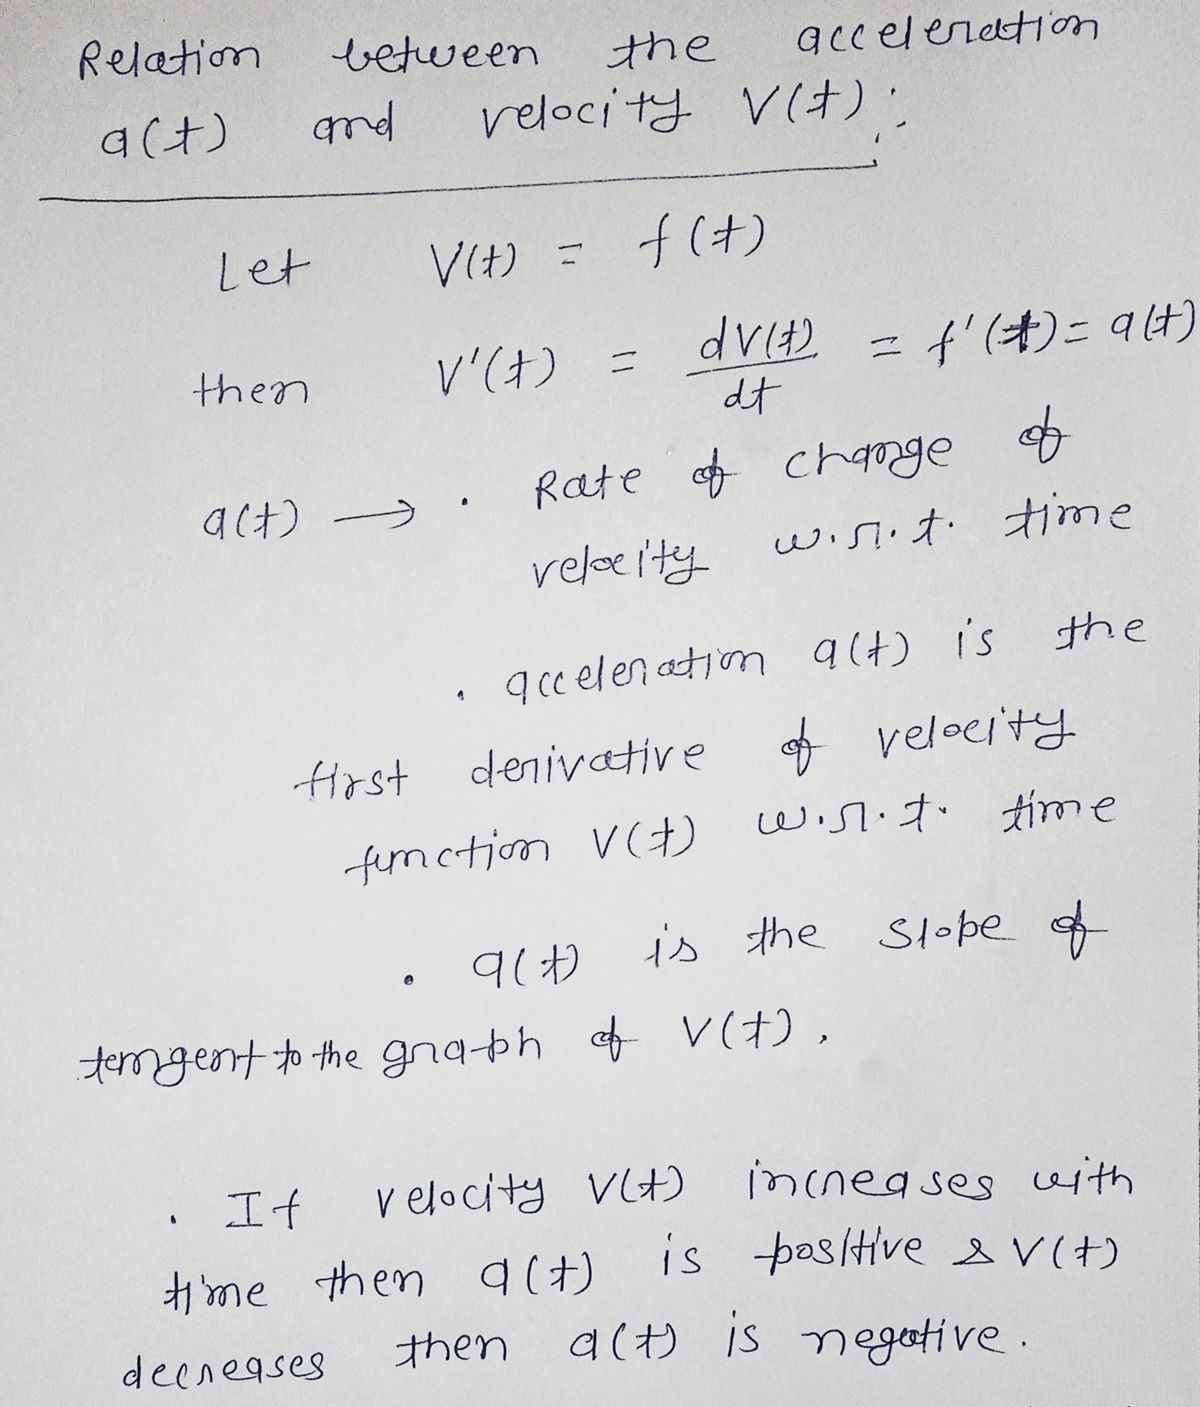 Relation between the acceleration
a(t) and velocity V(t):
Let V(t) = f(t)
then V'(t) = dV(t)/dt = f'(t) = a(t)
a(t) → • Rate of change of
velocity w.r.t. time
• acceleration a(t) is the
first derivative of velocity
function V(t) w.r.t. time
• a(t) is the slope of
tangent to the graph of V(t).
• If velocity V(t) increases with
time then a(t) is positive & V(t)
decreases then a(t) is negative.